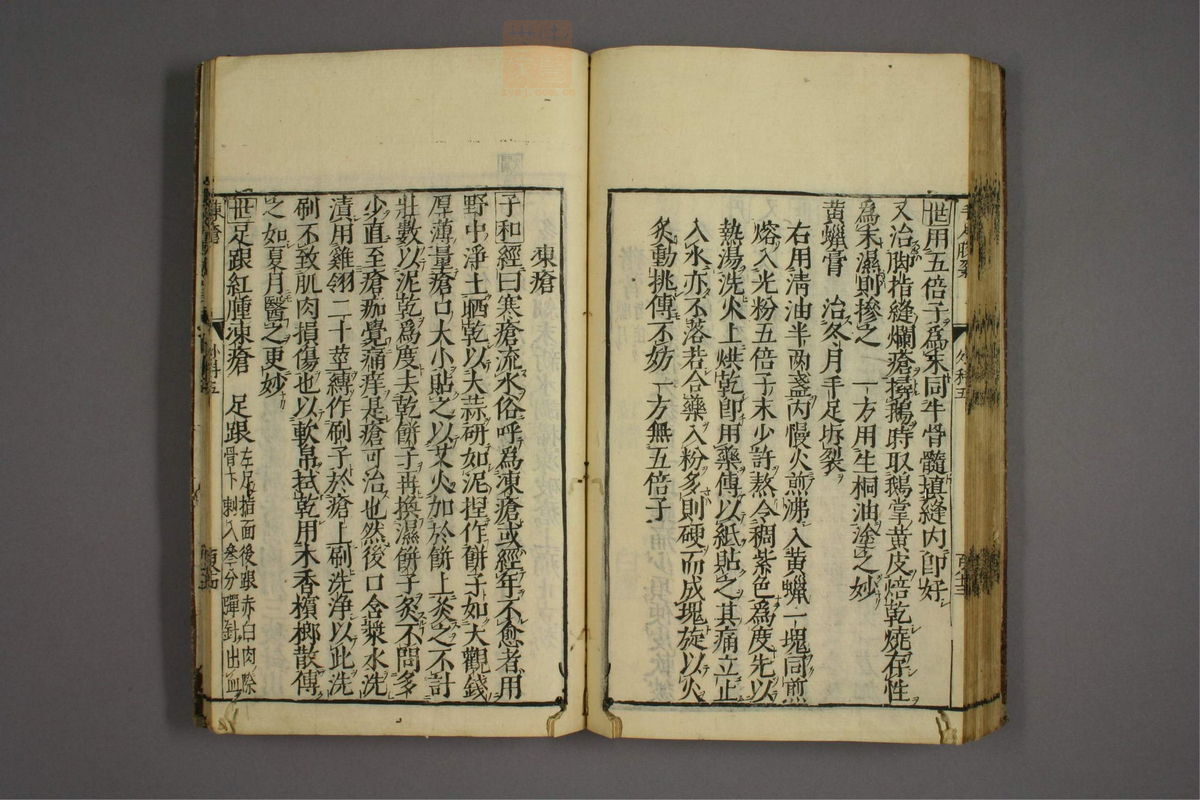 世用五倍子爲末同牛骨髓填縫内卽好
又治脚指縫爛瘡撏鵝時取鵝掌黃皮焙乾燒存性
爲末濕則摻之　一方用生桐油塗之妙
黃蠟膏　治冬月手足坼裂
右用淸油半兩盞内慢火煎沸入黃蠟一塊同煎
熔入光粉五倍子末少許熬令稠紫色爲度先以
熱湯洗火上烘乾卽用藥傅以紙貼之其痛立止
入水亦不落若合藥入粉多則硬而成塊旋以火
炙動挑傅不妨　一方無五倍子
凍瘡
子和經曰寒瘡流水俗呼爲凍瘡或經年不愈者用
野中淨土晒乾以大蒜研如泥捏作餠子如大觀錢
厚薄量瘡口大小貼之以艾火加於餠上灸之不計
壯數以泥乾爲度去乾餠子再換濕餠子灸不問多
少直至瘡痂覺痛痒是瘡可治也然後口含漿水洗
漬用雞翎二十莖縛作刷子於瘡上刷洗淨以此洗
刷不致肌肉損傷也以軟帛拭乾用木香檳榔散傅
之如夏月醫之更妙
世足跟紅腫凍瘡　足跟左足指面後跟赤白肉際
骨下刺入叄分彈針出血
凍瘡
外科五